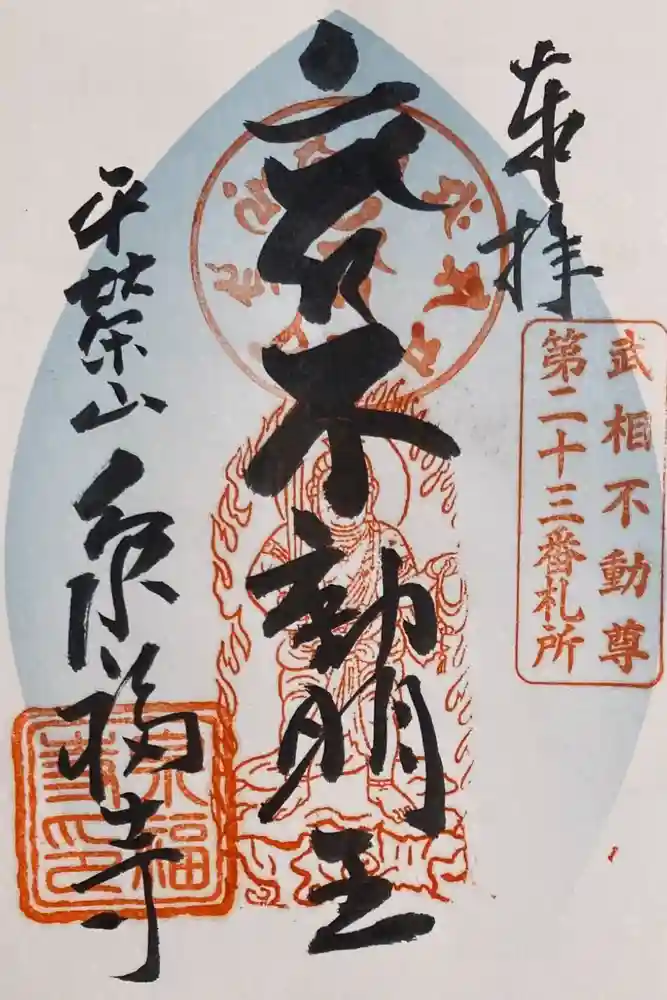 奉拝
武相不動尊
第二十三番札所
不動明王
平榮山 泉福寺
泉福
寺印